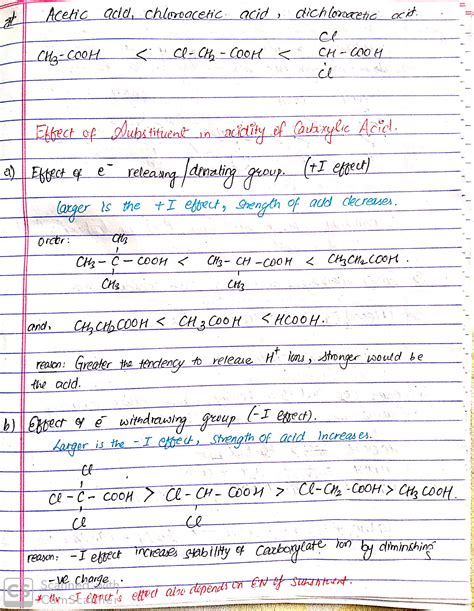 * Acetic acid, chloroacetic acid, dichloroacetic acid.
Cl
CH3-COOH < Cl-CH2-COOH < CH-COOH
Cl
Effect of Substituent in acidity of Carboxylic Acid.
a) Effect of e⁻ releasing/donating group. (+I effect)
larger is the +I effect, strength of acid decreases.
order:
CH3
CH3-C-COOH < CH3-CH-COOH < CH3CH2COOH.
CH3 CH3
and, CH3CH2COOH < CH3COOH < HCOOH.
reason: Greater the tendency to release H⁺ ions, stronger would be
the acid.
b) Effect of e⁻ withdrawing group (-I effect).
Larger is the -I effect, strength of acid increases.
Cl
Cl-C-COOH > Cl-CH-COOH > Cl-CH2-COOH > CH3COOH.
Cl Cl
reason: -I effect increases stability of Carboxylate ion by diminishing
-ve charge.
* the -I effect's effect also depends on EN of substituent.
CS